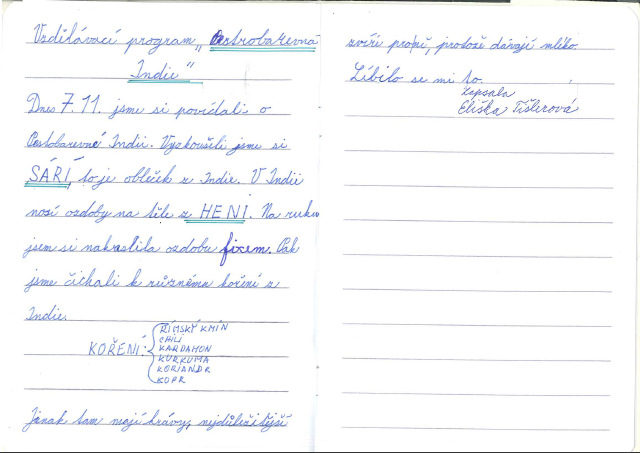 Vzdělávací program „Pestrobarevná
Indie“
Dnes 7. 11. jsme si povídali o
Pestobarevné Indii. Vyzkoušeli jsme si
SÁRÍ, to je obleček z Indie. V Indii
nosí ozdoby na těle z HENI. Na ruku
jsem si nakreslila ozdobu fixem. Pak
jsme čichali k různému koření z
Indie.
KOŘENÍ:
ŘÍMSKÝ KMÍN
CHILI
KARDAMON
KURKUMA
KORIANDR
KOPR
Jinak tam mají krávy, nejdůležitější
zvíře pro ně, protože dávají mléko.
Líbilo se mi to.
Zapsala
Eliška Tišlerová